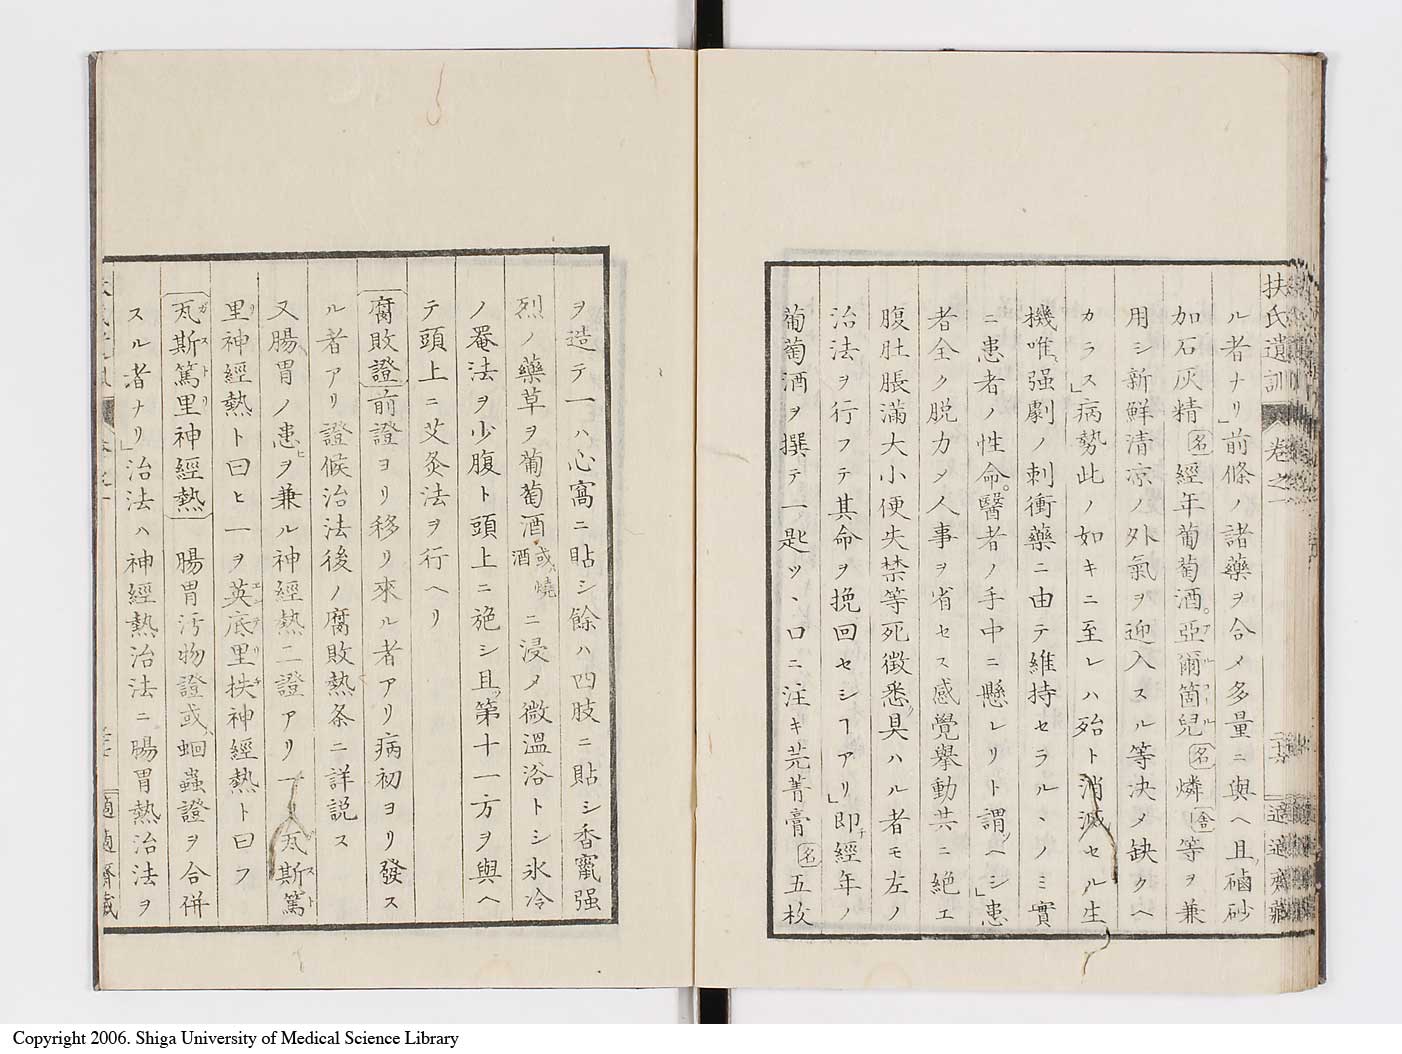 扶氏遺訓 卷之一 適適齋藏
ル者ナリ」前條ノ諸藥ヲ合メ多量ニ與ヘ且ツ磠砂
加石灰精名經年葡萄酒。亞爾箇兒アルコール名燐舎等ヲ兼
用シ新鮮清凉ノ外氣ヲ迎入スル等决メ缺クヘ
カラス」病勢此ノ如キニ至レハ殆ト消滅セル生
機唯強劇ノ刺衝藥ニ由テ維持セラルヽノミ實
ニ患者ノ性命。醫者ノ手中ニ懸レリト謂ツヘシ」患
者全ク脱力メ人事ヲ省セス感覺擧動共ニ絶エ
腹肚脹滿大小便失禁等死徴悉ク具ハル者モ左ノ
治法ヲ行フテ其命ヲ挽回セシヿアリ」即チ經年ノ
葡萄酒ヲ撰テ一匙ツヽ口ニ注キ芫菁膏名五枚
ヲ造テ一ハ心窩ニ貼シ餘ハ四肢ニ貼シ香竄强
烈ノ藥草ヲ葡萄酒或燒酒ニ浸メ微溫浴トシ氷冷
ノ罨法ヲ少腹ト頭上ニ施シ且ツ第十一方ヲ與ヘ
テ頭上ニ艾灸法ヲ行ヘリ
腐敗證 前證ヨリ移リ來ル者アリ病初ヨリ發ス
ル者アリ證候治法後ノ腐敗熱条ニ詳説ス
又腸胃ノ患ヒヲ兼ル神經熱二證アリ一ヲ瓦斯篤ガスト
里リ神經熱ト曰ヒ一ヲ英底里扶エンテリキ神經熱ト曰フ
瓦斯篤里ガストリ神經熱 腸胃汚物證或蛔蟲證ヲ合併
スル者ナリ」治法ハ神經熱治法ニ腸胃熱治法ヲ
適適齋藏
Copyright 2006. Shiga University of Medical Science Library